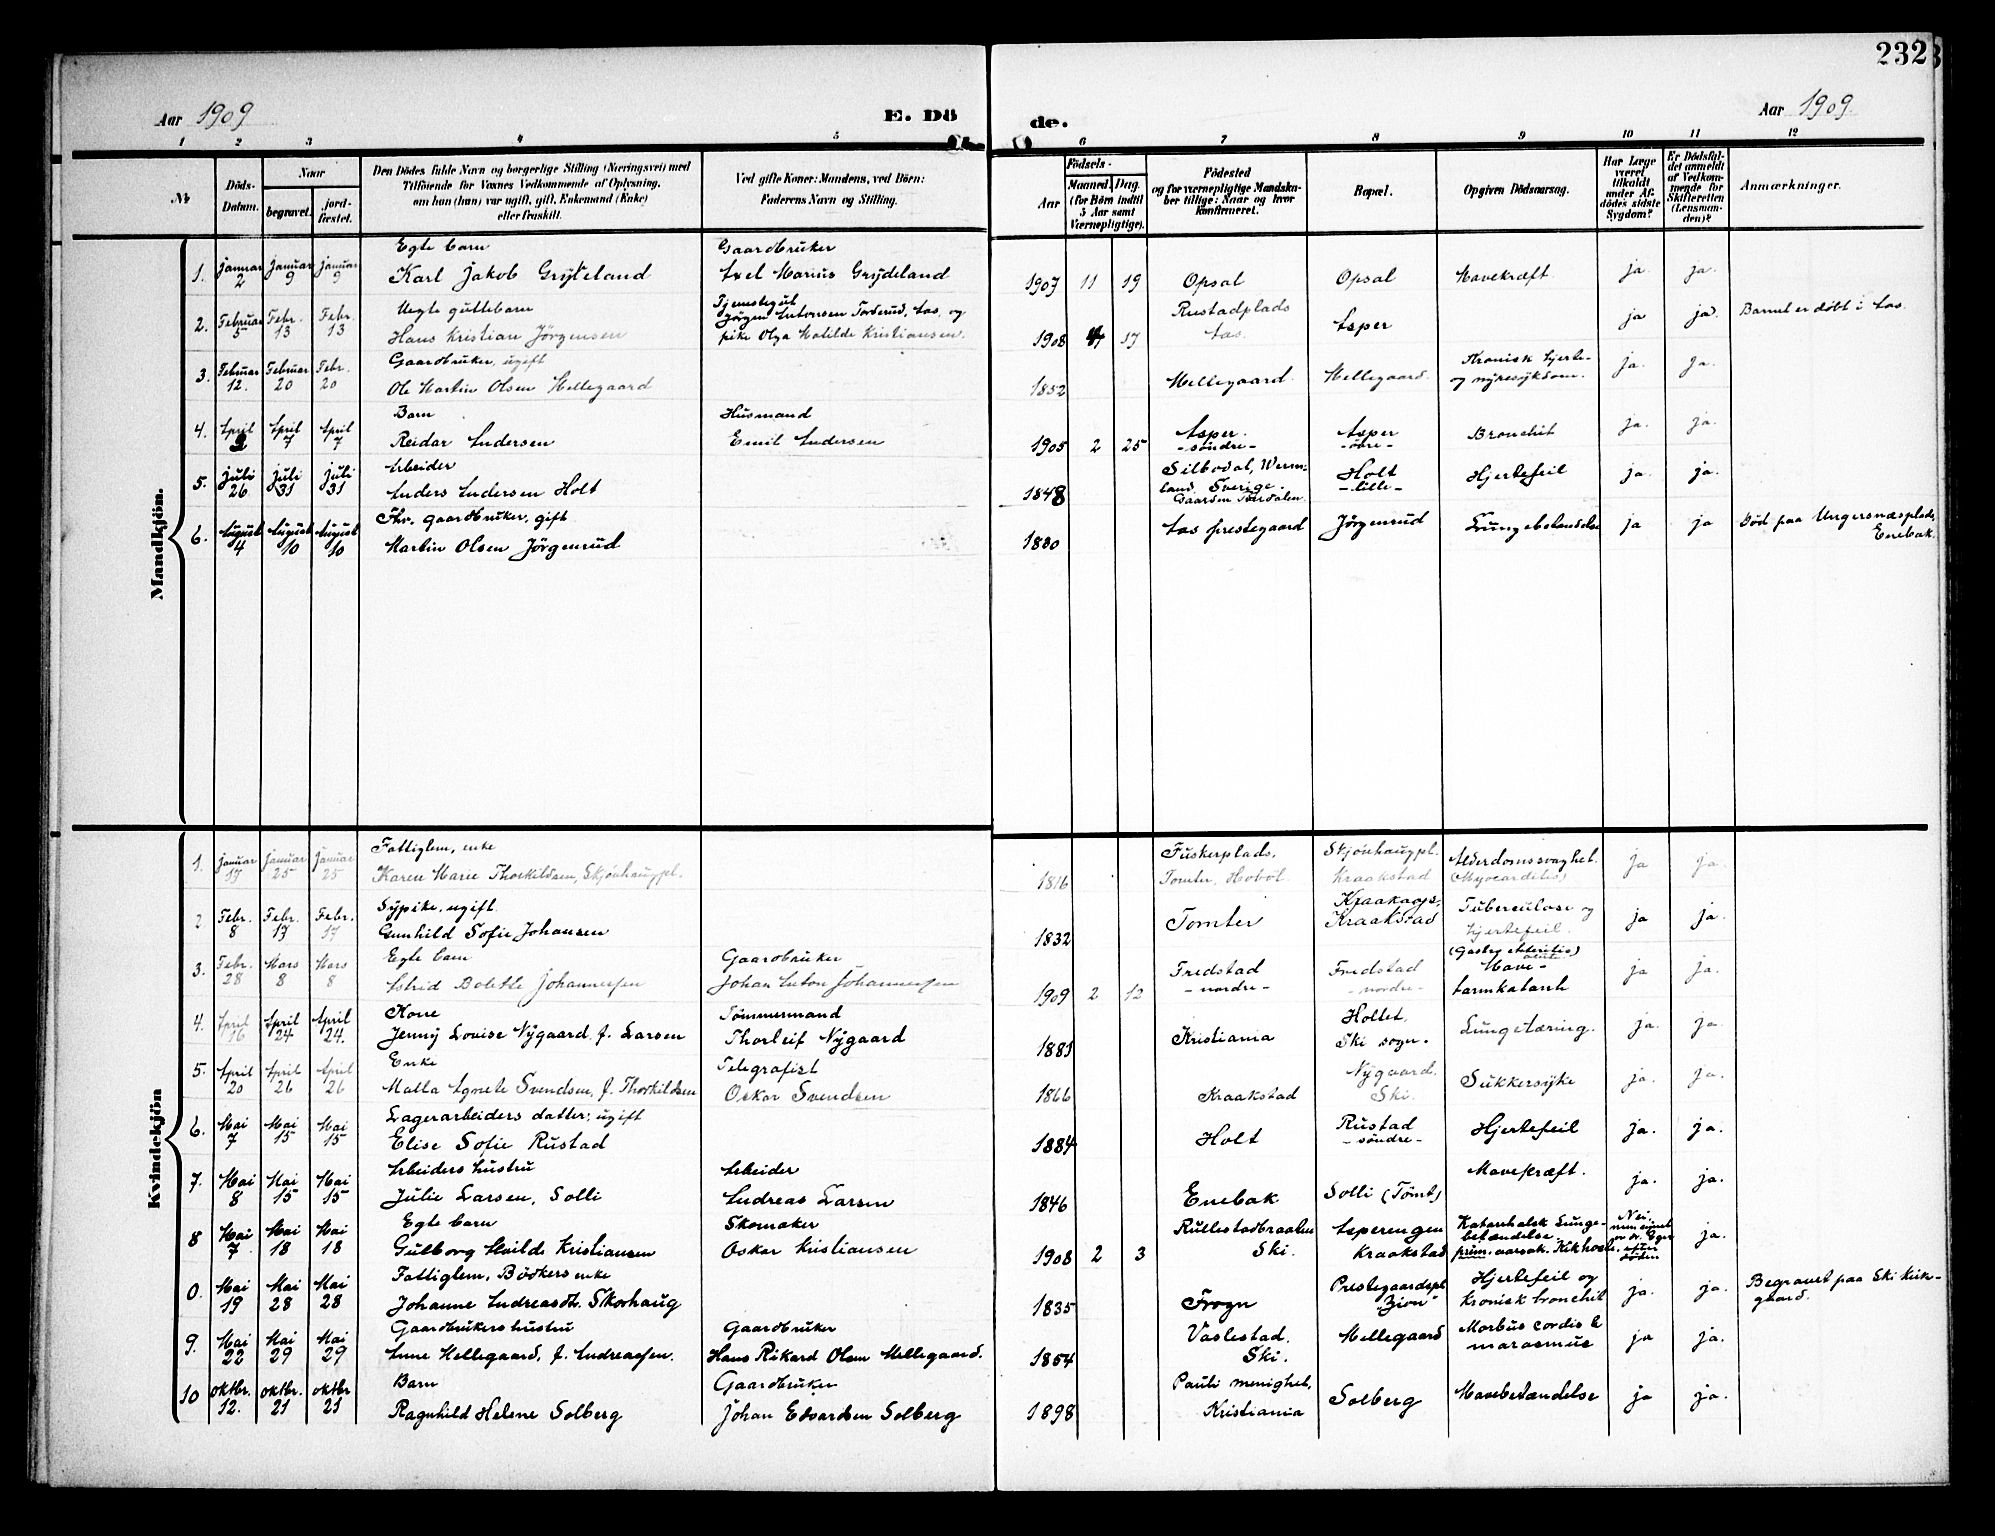 232
Aar 1909
E. Dö
de.
Aar 1909.
1 2 3 4 5 6 7 8 9 10 11 12
№
Döds-Datum.
Naar
begravet.
jord-festet.
Den Dödes fulde Navn og borgerlige Stilling (Næringsvei) med
Tilföiende for Voxnes Vedkommende af Oplysning,
om han (hun) var ugift, gift, Enkemand (Enke)
eller fraskilt.
Ved gifte Koner: Mandens, ved Börn:
Faderens Navn og Stilling.
Födsels-
Aar
Maaned. Dag.
(for Börn indtil
5 Aar samt
Værnepligtige).
Födested
og for værnepligtige Mandska-
ber tillige: Naar og hvor
konfirmeret.
Bopæl.
Opgiven Dödsaarsag.
Har Læge
været
tilkaldt
under Af-
dödes sidste
Sygdom?
Er Dödsfal-
det anmeldt
af Vedkom-
mende for
Skifteretten
(Lensman-
den)?
Anmærkninger.
Mandkjön.
Egte barn Gaardbruker
1. Januar 2 Januar 9 Januar 9 Karl Jakob Gryteland Axel Marius Grydeland 1907 11 19 Opsal Opsal Mavekræft ja. ja.
Uegte guttebarn
2. Februar 5 Febr. 13 Febr. 13 Hans Kristian Jörgensen Jörgen Antonsen Torderud, Aas, og
pike Olga Matilde Kristiansen. 1908 17 Rustadplads Aas. Asper ja ja. Barnet er döbt i Aas.
Gaardbruker, ugift
3. Februar 12. Februar 20 Febr. 20 Ole Martin Olsen Mellegaard 1852 Mellegaard. Mellegaard. Kronisk hjerte-
og nyresykdom. ja. ja.
Barn Husmand
4. April April 7 April 7 Reidar Andersen Emil Andersen 1905 2 25 Asper. -söndre- Asper -övre- Bronchit ja. ja.
Arbeider
5. Juli 26 Juli 31 Juli 31 Anders Andersen Holt 1848 Silbodal, Werm-
land, Sverige. Holt -lille- Hjertefeil ja. ja.
Fhv. gaardbruker, gift
6. August 4 August 10 August 10 Martin Olsen Jörgenrud 1880 Aas prestegaard Jörgenrud Lungebetændelse ja ja Död paa Ungersnæsplads,
Enebak.
Kvindekjön
Fattiglem, enke
1. Januar 17 Januar 25 Januar 25 Karen Marie Thorkildsen, Skjönhaugpl. 1816 Fuskerplads,
Tomter, Hoböl. Skjönhaugpl.
Kraakstad Alderdomssvaghet.
(Myocarditis) ja ja.
Sypike, ugift.
2 Febr. 8 Febr. 17 Febr. 17 Gunhild Sofie Johansen 1832 Tomter Kraakstad Tuberculose og
hjertefeil. ja ja.
Egte barn Gaardbruker
3. Febr. 28 Mars 8 Mars 8 Astrid Bolette Johannessen Johan Anton Johannessen 1909 2 12 Fredstad -nordre- Fredstad -nordre- Mave-
tarmkatarrh ja ja.
Kone Tömmermand
4. April 16 April 24 April 24. Jenny Lovise Nygaard f. Larsen Thorleif Nygaard 1881 Kristiania Holtet,
Ski sogn. Lungetæring. ja. ja.
Enke Telegrafist
5. April 20 April 26 April 26 Malla Agnete Svendsen, f. Thorkildsen Oskar Svendsen 1866 Kraakstad Nygaard.
Ski. Sukkersyke ja. ja.
Lagerarbeiders datter, ugift
6. Mai 7 Mai 15 Mai 15 Elise Sofie Rustad 1884 Holt Rustad -söndre- Hjertefeil ja. ja.
Arbeiders hustru Arbeider
7. Mai 8 Mai 15 Mai 15 Julie Larsen, Solli Andreas Larsen 1846 Enebak Solli (Tomt) Mavekræft. ja. ja.
Egte barn Skomaker
8 Mai 7 Mai 18 Mai 18 Gulborg Alvilde Kristiansen Oskar Kristiansen 1908 2 3 Rullestadbraaten
Ski. Asperengen
Kraakstad Katarrhalsk Lunge-
betændelse,
prim. aarsak. Kikhoste. Nei, ja.
Fattiglem, Bödkers enke
0. Mai 19 Mai 28 Mai 28 Johanne Andreasdt. Skorhaug 1835 Frogn Prestegaardspl.
"Zion" Hjertefeil og
kronisk bronchit ja. ja. Begravet paa Ski kirke-
gaard.
Gaardbrukers hustru Gaardbruker
9. Mai 22 Mai 29 Mai 29 Anne Mellegaard, f. Andreassen. Hans Rikard Olsen Mellegaard. 1854 Vaslestad.
Ski. Mellegaard Morbus cordis &
marasmus ja ja.
Barn Gaardbruker
10 oktbr. 12. oktbr. 21 oktbr 21 Ragnhild Helene Solberg Johan Edvardsen Solberg 1898 Pauli menighet,
Kristiania Solberg Mavebetændelse ja ja.